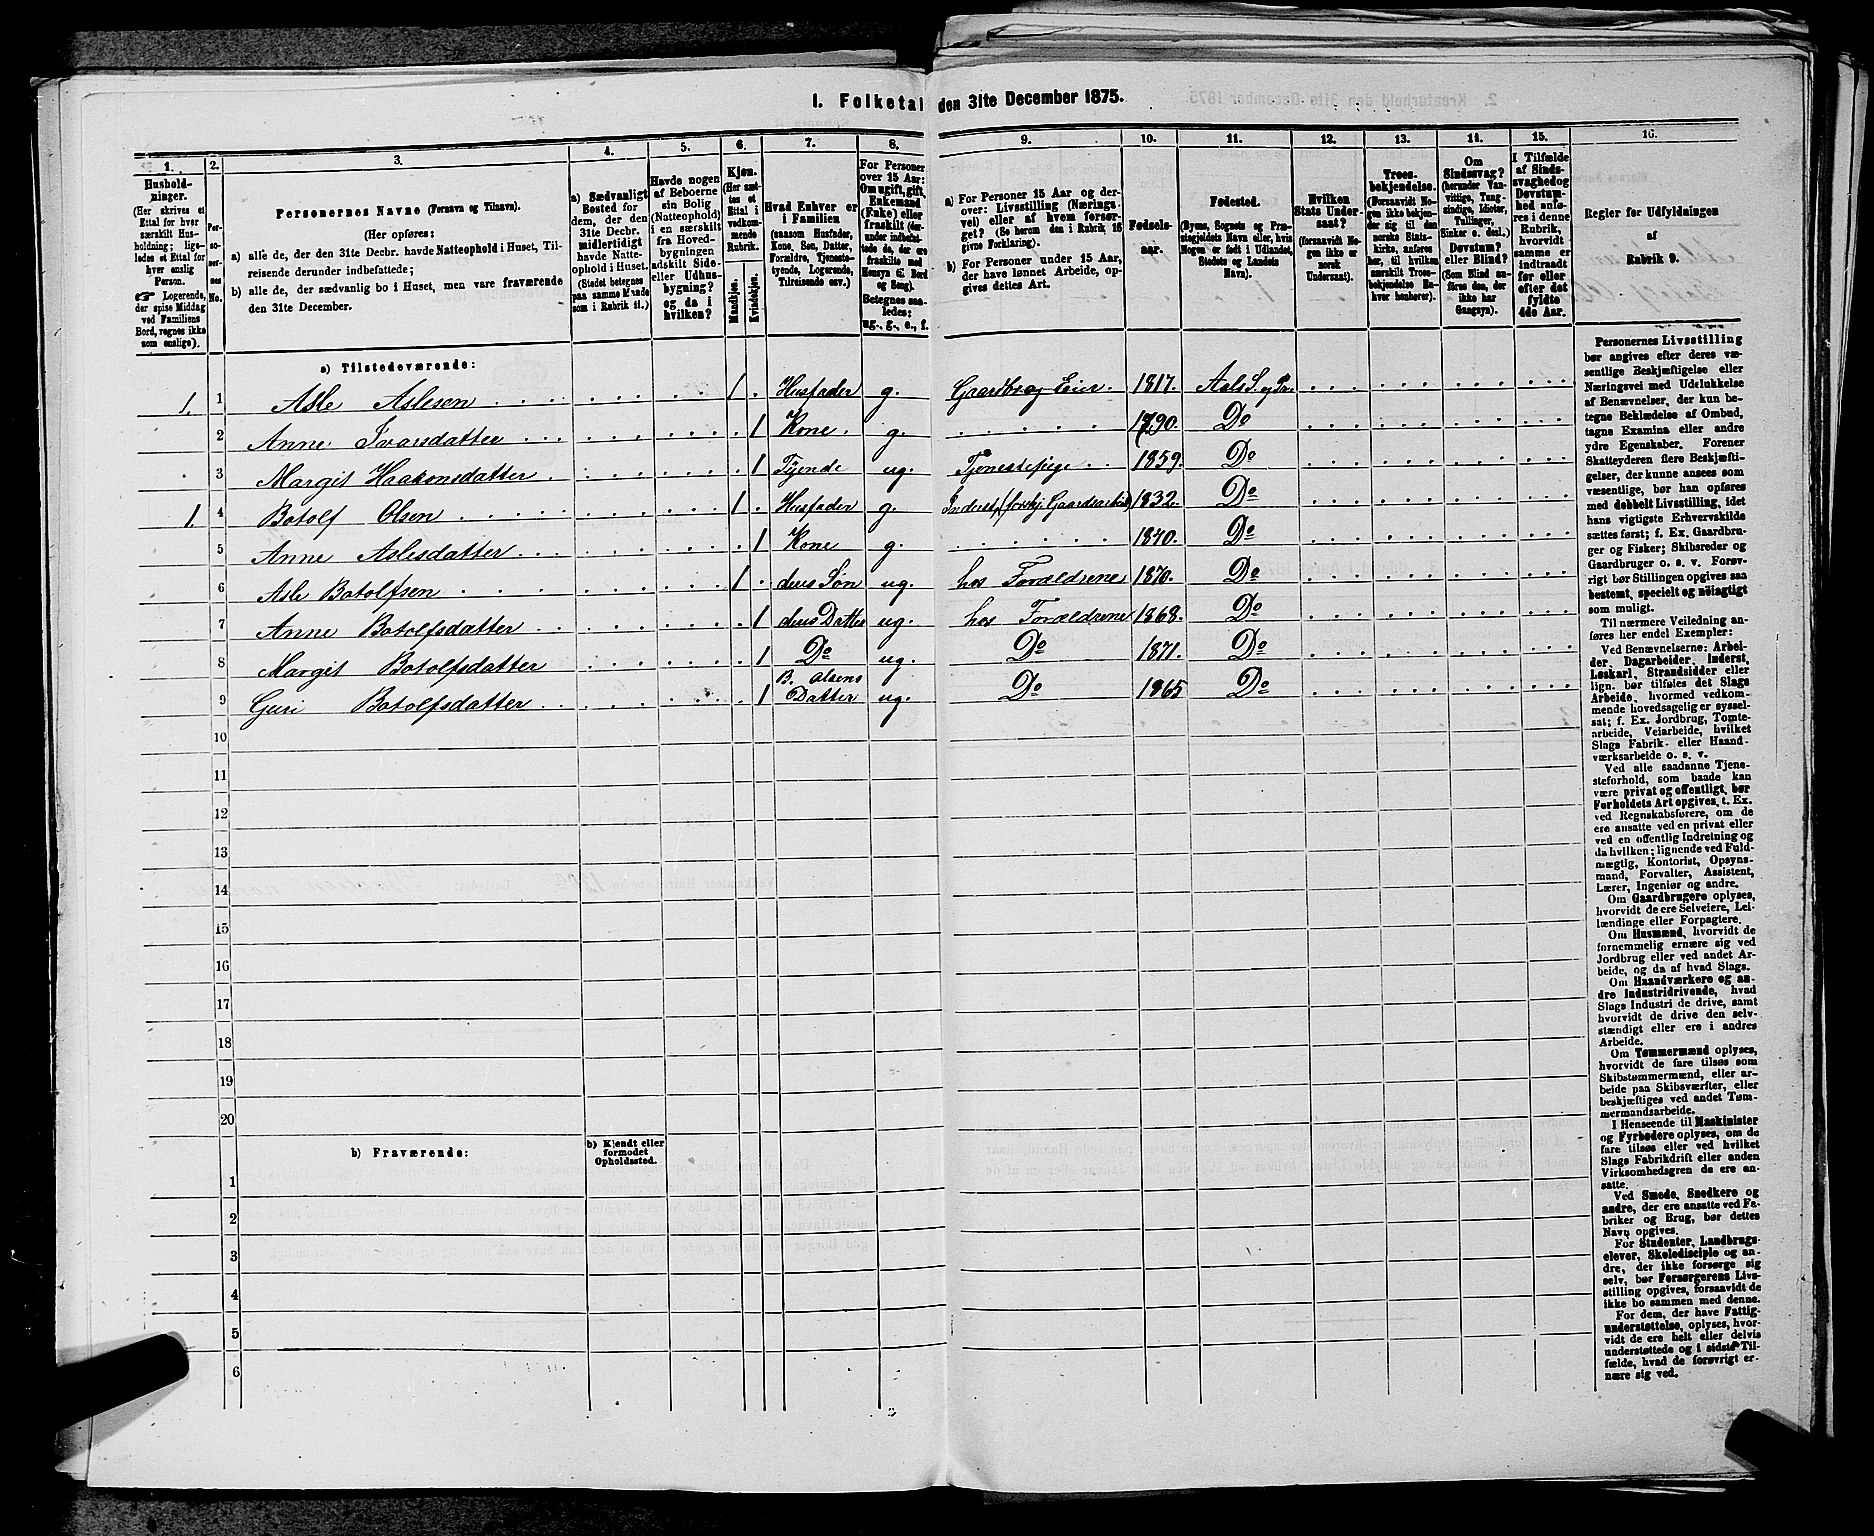 1. Folketal den 31te December 1875.
1.
2.
3.
4.
5.
6.
7.
8.
9.
10.
11.
12.
13.
14.
15.
16.
Hushold-
ninger.
(Her skrives et
Ettal for hver
særskilt Hus-
holdning; lige-
ledes et Ettal for
hver enslig
Person.
☞ Logerende,
der spise Middag
ved Familiens
Bord, regnes ikke
som enslige).
Per-
so-
ner-
nes
No.
Personernes Navne (Fornavn og Tilnavn).
(Her opføres:
a) alle de, der den 31te Decbr. havde Natteophold i Huset, Til-
reisende derunder indbefattede;
b) alle de, der sædvanlig bo i Huset, men vare fraværende
den 31te December.
a) Sædvanligt
Bosted for
dem, der den
31te Decbr.
midlertidigt
havde Natte-
ophold i Huset.
(Stedet betegnes
paa samme Maade
som i Rubrik 11.)
Havde nogen
af Beboerne
sin Bolig
(Natteophold)
i en særskilt
fra Hoved-
bygningen
adskilt Side-
eller Udhus-
bygning?
og da i
hvilken?
Kjøn.
(Her sæt-
tes et
Ettal i
vedkom-
mende
Rubrik.
Mandkjøn.
Kvindekjøn.
Hvad Enhver er
i Familien
(saasom Husfader,
Kone, Søn, Datter,
Forældre, Tjeneste-
tyende, Logerende,
Tilreisende osv.)
For Personer
over 15 Aar:
Om ugift, gift,
Enkemand
(Enke) eller
fraskilt (der-
under indbefat-
tede de, der ere
fraskilte med
Hensyn til Bord
og Seng).
Betegnes saa-
ledes:
ug., g., e., f.
a) For Personer 15 Aar og der-
over: Livsstilling (Nærings-
vei) eller af hvem forsør-
get? (Se herom den i Rubrik 16
givne Forklaring).
b) For Personer under 15 Aar,
der have lønnet Arbeide, op-
gives dettes Art.
Fødsels-
aar.
Fødested.
(Byens, Sognets og Præ-
stegjeldets Navn eller, hvis
Nogen er født i Udlandet,
Stedets og Landets
Navn).
Hvilken
Stats Under-
saat?
(forsaavidt No-
gen ikke er
norsk
Undersaat).
Troes-
bekjendelse.
(Forsaavidt No-
gen ikke bekjen-
der sig til den
norske Stats-
kirke, anføres
her, til hvilken
særskilt Troes-
bekjendelse En-
hver henhører).
Om
Sindssvag?
(herunder Van-
vittige, Tung-
sindige, Idioter,
Tullinger,
Sinker o. desl.)
Døvstum?
eller Blind?
(Som Blind an-
føres den, der
ikke har
Gangsyn).
I Tilfælde
af Sinds-
svaghed og
Døvstum-
hed anfø-
res i denne
Rubrik,
hvorvidt
samme er
indtraadt
før eller
efter det
fyldte
4de Aar.
Regler for Udfyldningen
af
Rubrik 9.
a) Tilstedeværende:
1. 1 Asle Aslesen 1 Husfader g. Gaardbr. og Eier. 1817. Aals S. og Pr.
2 Anne Ivarsdatter 1 Kone. g. 1790. Do
3 Margit Haakonsdatter 1 Tyende ug. Tjenestepige 1859. Do
1. 4 Botolf Olsen 1 Husfader g. Inderst, forskj. Gaardsarbeid) 1832. Do
5 Anne Aslesdatter 1 Kone g. 1840. Do
6 Asle Botolfsen 1 deres Søn ug. hos Forældrene 1870. Do
7 Anne Botolfsdatter 1 deres Datter ug. hos Forældrene 1868. Do
8 Margit Botolfsdatter 1 Do ug. Do 1871. Do
9 Guri Botolfsdatter 1 B. Olsens Datter ug. Do 1865 Do
10
11
12
13
14
15
16
17
18
19
20
b) Fraværende:
b) Kjendt eller
formodet
Opholdssted.
1
2
3
4
5
6
Personernes Livsstilling
bør angives efter deres væ-
sentlige Beskjæftigelse eller
Næringsvei med Udelukkelse
af Benævnelser, der kun be-
tegne Beklædelse af Ombud,
tagne Examina eller andre
ydre Egenskaber. Forener
Skatteyderen flere Beskjæfti-
gelser, der kunne ansees som
væsentlige, bør han opføres
med dobbelt Livsstilling, idet
hans vigtigste Erhvervskilde
sættes først; f. Ex. Gaardbru-
ger og Fisker; Skibsreder og
Gaardbruger o. s. v. Forøv-
rigt bør Stillingen opgives saa
bestemt, specielt og nöiagtigt
som muligt.
Til nærmere Veiledning an-
føres her endel Exempler:
Ved Benævnelserne: Arbei-
der, Dagarbeider, Inderst,
Løskarl, Strandsidder eller
lign. bør tilføies det Slags
Arbeide, hvormed vedkom-
mende hovedsagelig er syssel-
sat; f. Ex. Jordbrug, Tomte-
arbeide, Veiarbeide, hvilket
Slags Fabrik- eller Haand-
værksarbeide o. s. v.
Ved alle saadanne Tjene-
steforhold, som baade kan
være privat og offentligt, bør
Forholdets Art opgives, t. Ex.
ved Regnskabsførere, om de
ere ansatte ved en privat eller
ved en offentlig Indretning og
da hvilken; lignende ved Fuld-
mægtig, Kontorist, Opsyns-
mand, Forvalter, Assistent,
Lærer, Ingeniør og andre.
Om Gaardbrugere oplyses,
hvorvidt de ere Selveiere, Lei-
lændinge eller Forpagtere.
Om Husmænd, hvorvidt de
fornemmelig ernære sig ved
Jordbrug eller ved andet Ar-
beide, og da af hvad Slags.
Om Haandværkere og an-
dre Industridrivende, hvad
Slags Industri de drive, samt
hvorvidt de drive den selv-
stændigt eller ere i andres
Arbeide.
Om Tømmermænd oplyses,
hvorvidt de fare tilsøs som
Skibstømmermænd, eller ar-
beide paa Skibsværfter, eller
beskjæftiges ved andet Tøm-
mermandsarbeide.
I Henseende til Maskinister
og Fyrbødere oplyses, om de
fare tilsøs eller ved hvilket
Slags Fabrikdrift eller anden
Virksomhedsgren de ere an-
satte.
Ved Smede, Snedkere og
andre, der ere ansatte ved Fa-
briker og Brug, bør dettes
Navn opgives.
For Studenter, Landbrugs-
elever, Skoledisciple og an-
dre, der ikke forsørge sig
selv, bør Forsørgerens Livs-
stilling opgives, forsaavidt de
ikke bo sammen med denne.
For dem, der have Fattig-
understøttelse, oplyses, hvor-
vidt de ere helt eller delvis
understøttede og i sidste Til-
fælde, hvad de forøvrigt er-
nære sig ved.